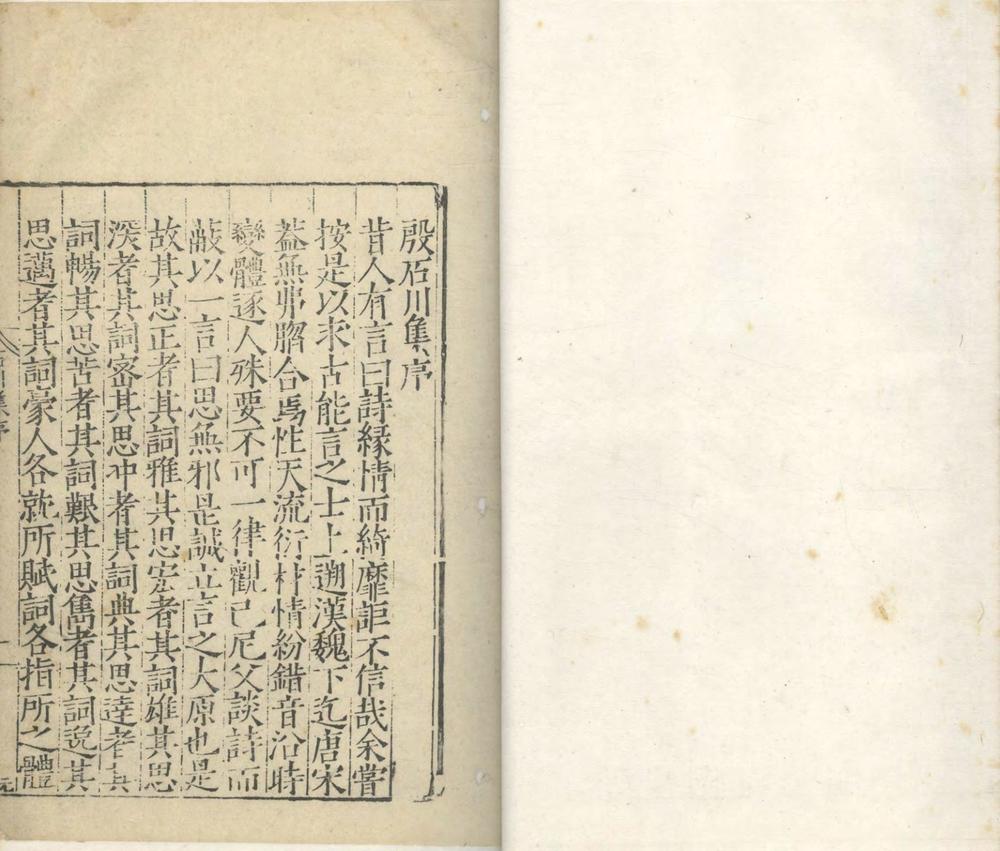 殷石川集序
昔人有言曰詩緣情而綺靡詎不信哉余嘗
按是以求古能言之士上遡漢魏下迄唐宋
蓋無弗脗合焉性天流衍材情紛錯音沿時
變體逐人殊要不可一律觀已尼父談詩而
蔽以一言曰思無邪是誠立言之大原也是
故其思正者其詞雅其思宏者其詞雄其思
深者其詞密其思冲者其詞典其思達者其
詞暢其思苦者其詞艱其思雋者其詞逸其
思邁者其詞豪人各就所賦詞各指所之體
川集序
一